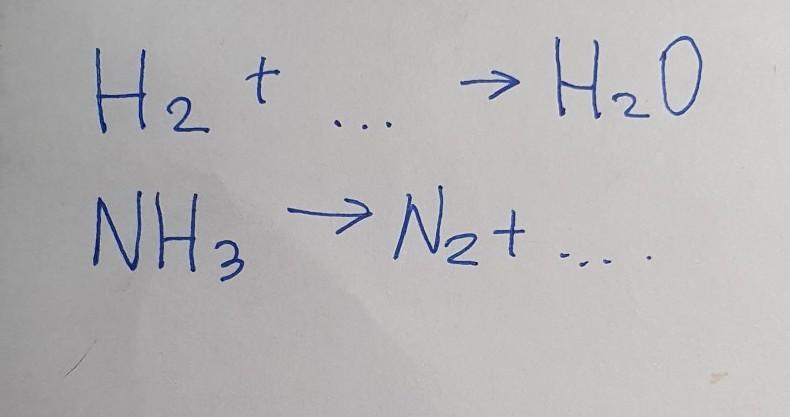 H₂ + ... → H₂O
NH₃ → N₂ + ....